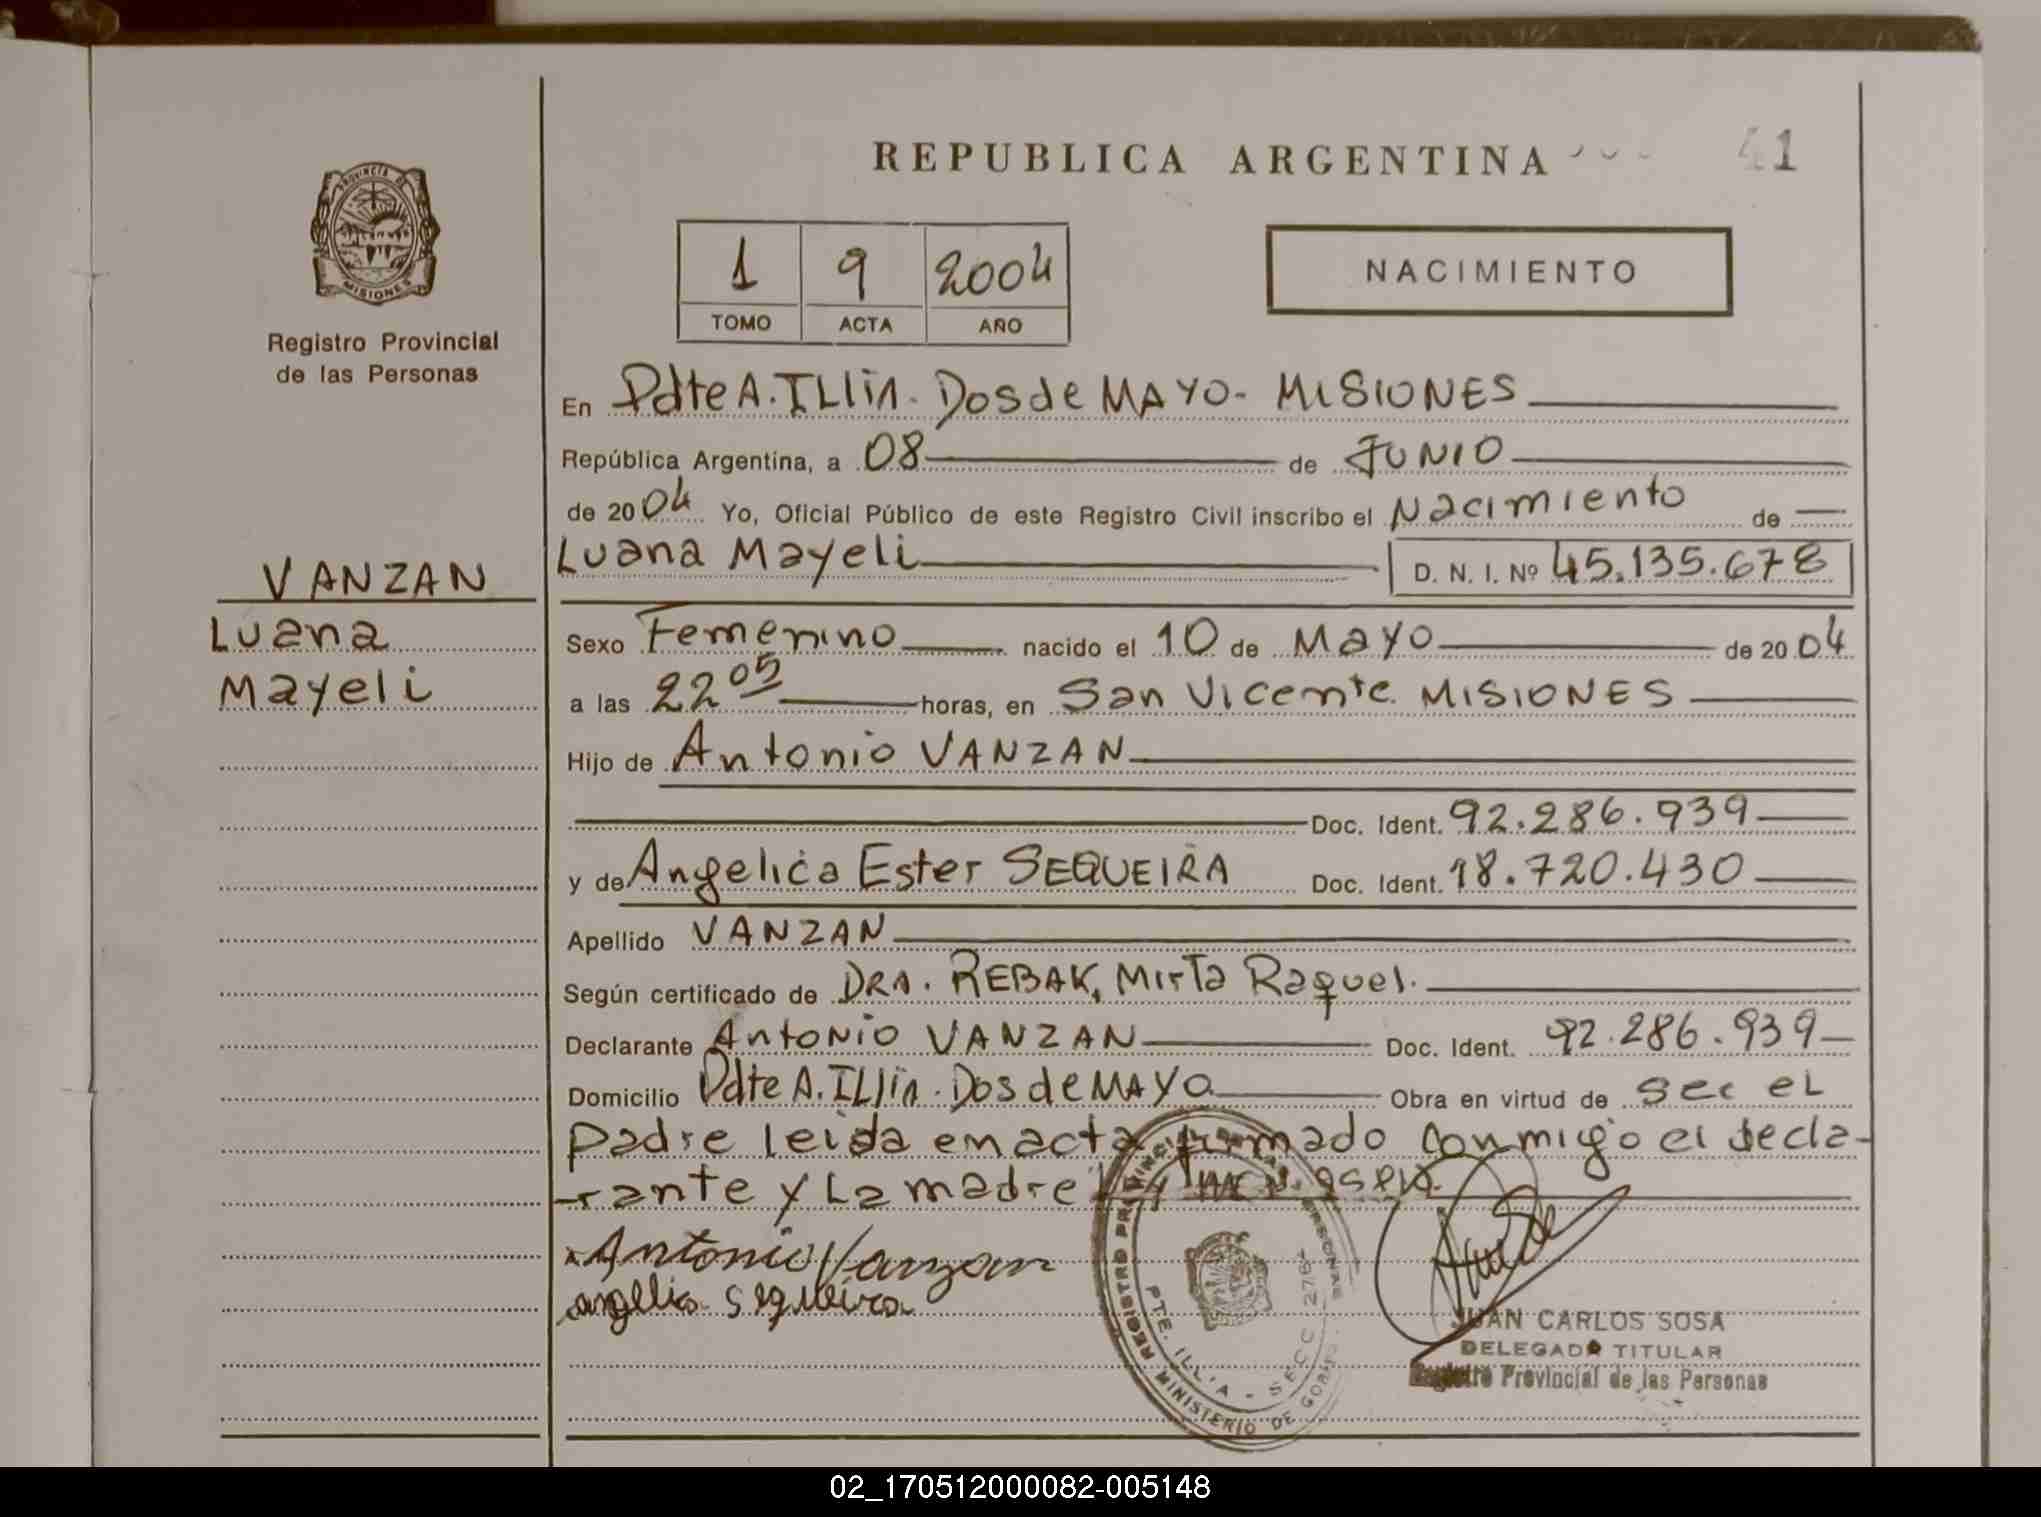 REPUBLICA ARGENTINA
41
PROVINCIA DE
MISIONES
Registro Provincial
de las Personas
1 9 2004
TOMO ACTA AÑO
NACIMIENTO
En Pdte A. ILLia. Dos de MAYO - MISIONES
República Argentina, a 08 de JUNIO
de 2004 Yo, Oficial Público de este Registro Civil inscribo el Nacimiento de
Luana Mayeli D. N. I. Nº 45.135.678
VANZAN
Luana
Mayeli
Sexo Femenino nacido el 10 de Mayo de 2004
a las 22 05 horas, en San Vicente MISIONES
Hijo de Antonio VANZAN
Doc. Ident. 92.286.939
y de Angelica Ester SEQUEIRA Doc. Ident. 18.720.430
Apellido VANZAN
Según certificado de DRA. REBAK, Mirta Raquel.
Declarante Antonio VANZAN Doc. Ident. 92.286.939
Domicilio Pdte A. ILLia. Dos de MAYO Obra en virtud de ser el
padre leida em acta firmado conmigo el decla-
rante y La madre
Antonio Vanzan
angelica sequeira
REGISTRO PROVINCIAL DE LAS PERSONAS
PTE. ILLIA - SECC
MINISTERIO DE
JUAN CARLOS SOSA
DELEGADO TITULAR
Registro Provincial de las Personas
02_170512000082-005148